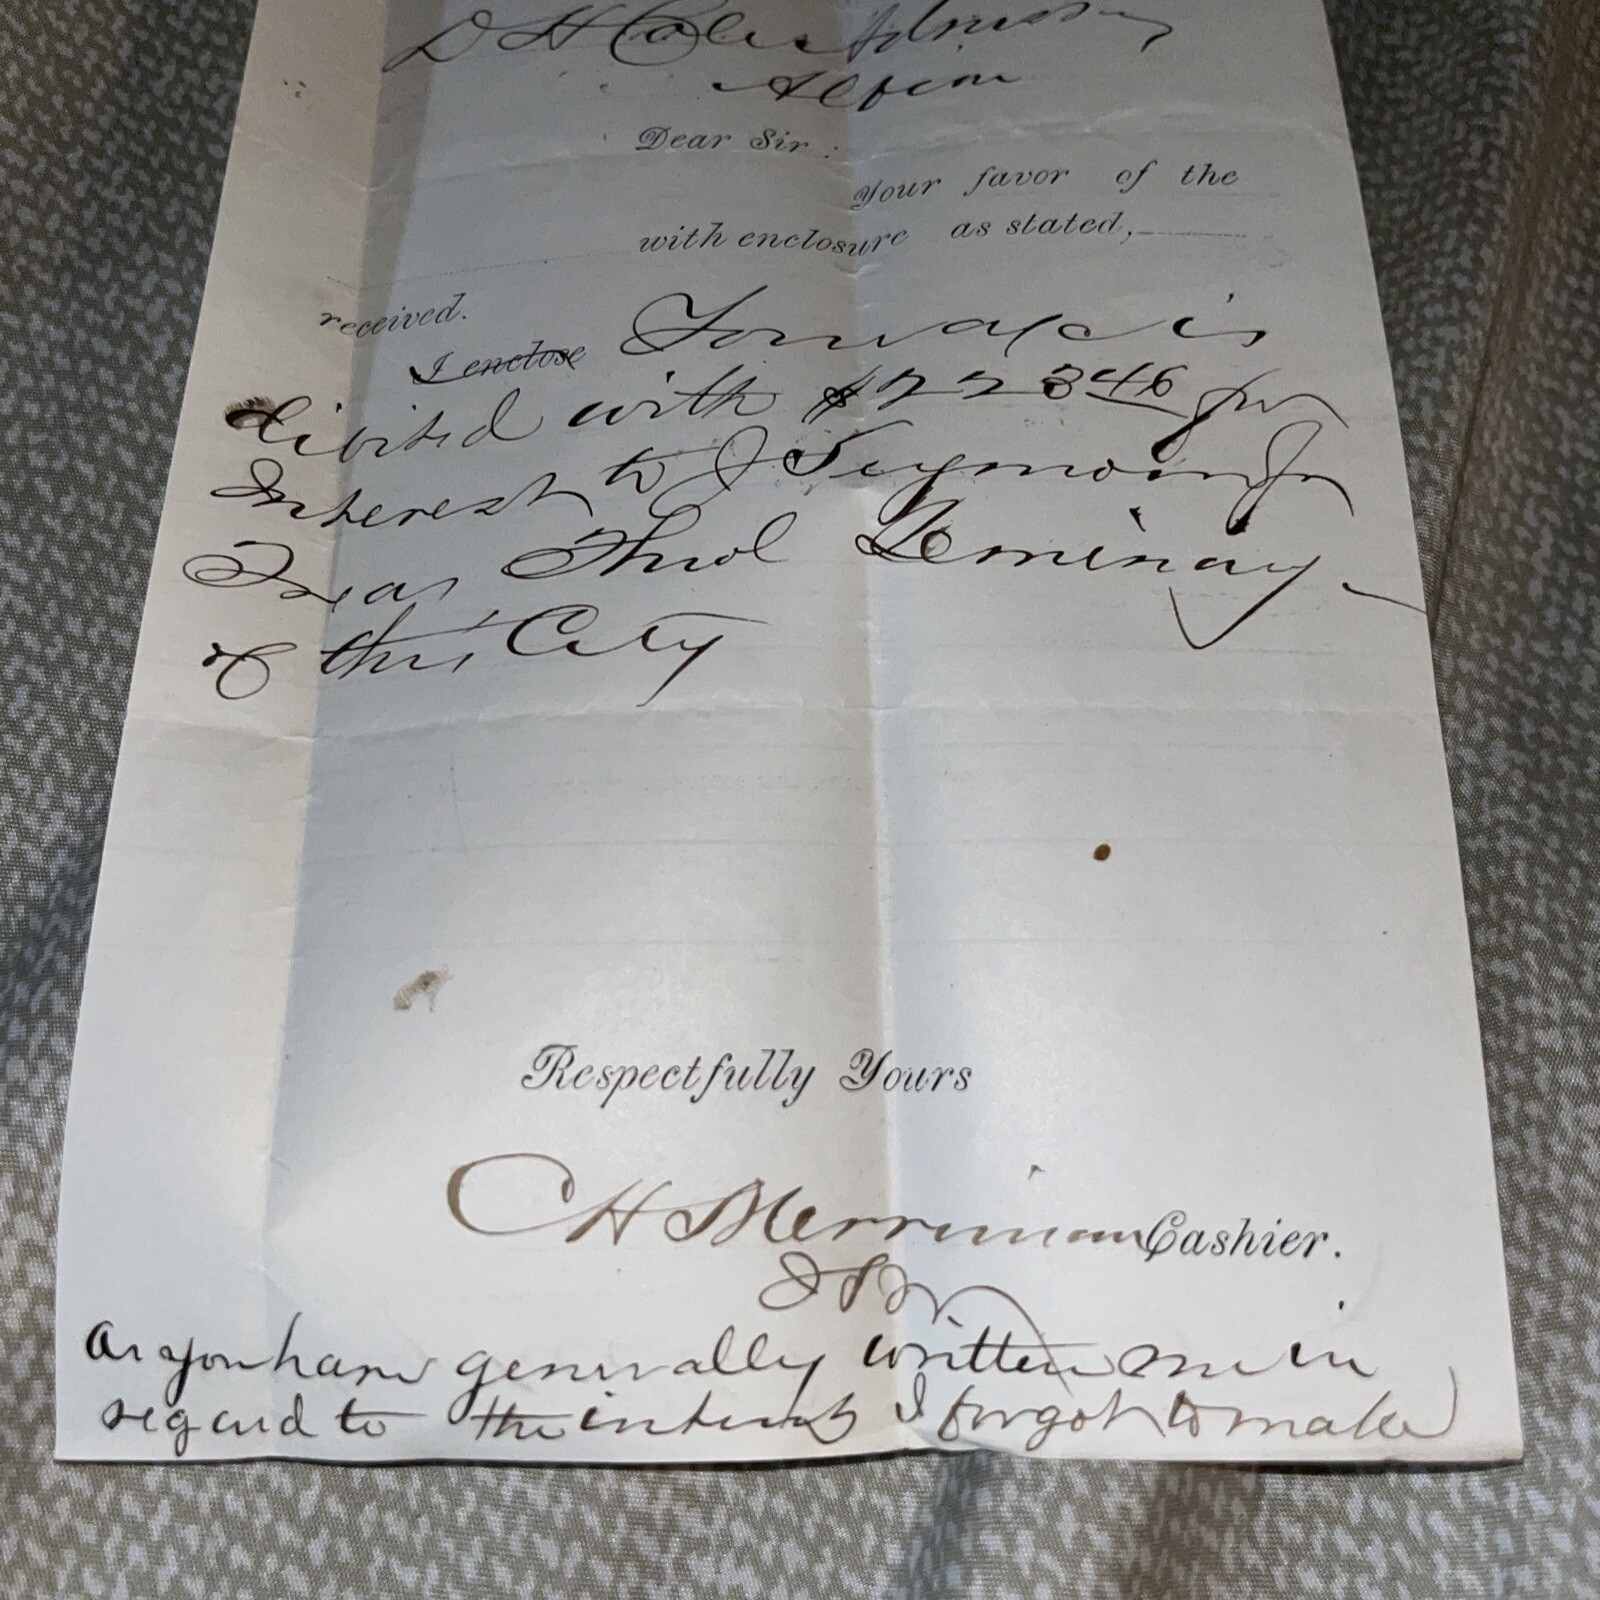 D H Cole
Albion
Dear Sir:
Your favor of the
with enclosure as stated,
received.
I enclose Your a/c is
debited with $2223 46 for
Interest to J Seymour Jr
Treas Theol Seminary
of this City
Respectfully Yours
C H Merriman Cashier.
As you have generally written me in
regard to the interest I forgot to make